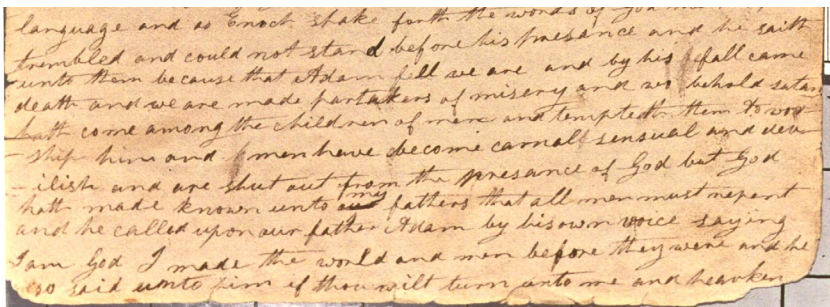 language and as Enoch spake forth the words of God the
trembled and could not stand before his presance and he saith
unto them because that Adam fell we are and by his fall came
death and we are made partakers of misery and wo behold satan
hath come among the children of men and tempteth them to wor
- ship him and men have become carnall sensual and dev-
- ilish and are shut out from the presance of God but God
hath made known unto my fathers that all men must repent
and he called upon our father Adam by his own voice saying
I am God I made the world and men before they were and he
also said unto him if thou wilt turn unto me and hearken